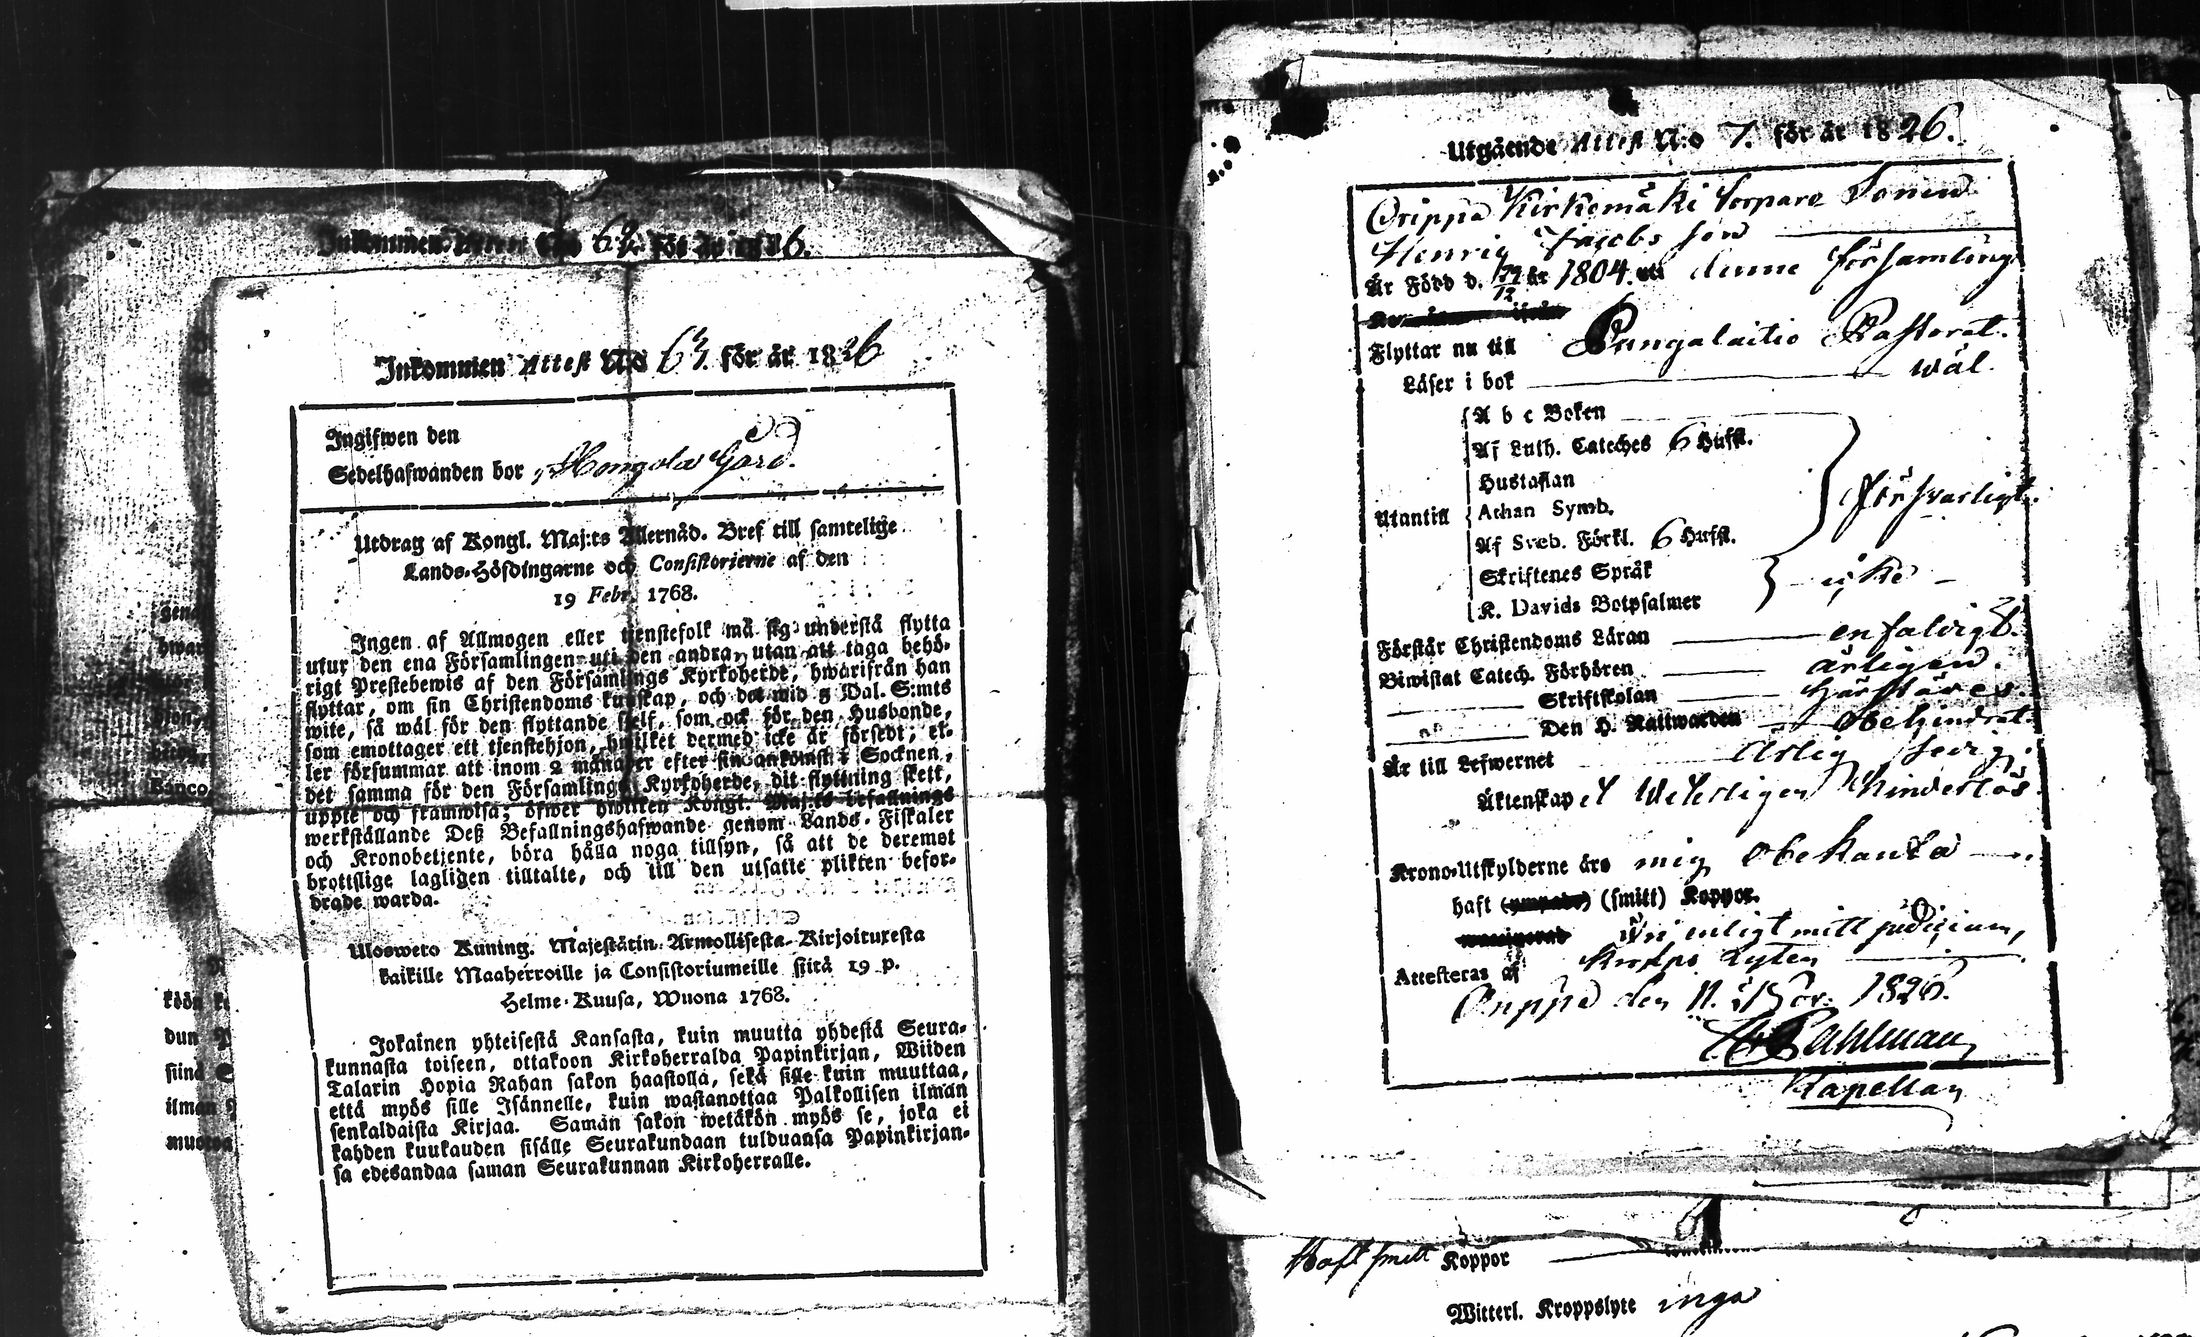 Inkommen Attest N:o 62. för år 1826
Ingifwen den
Sedelhafwanden bor Hongola Gård.
Utdrag af Kongl. Maj:ts Allernåd. Bref till samtelige
Lands-Höfdingarne och Consistorierne af den
19 Febr. 1768.
Ingen af Allmogen eller tjenstefolk må sig understå flytta
utur den ena Församlingen uti den andra, utan att taga behö-
rigt Prestebewis af den Församlings Kyrkoherde, hwarifrån han
flyttar, om sin Christendoms kunskap, och det wid 5 Dal. S:mts
wite, så wäl för den flyttande sjelf, som ock för den Husbonde,
som emottager ett tjenstehjon, hwilket dermed icke är försedt; el-
ler försummar att inom 2 månader efter sin ankomst i Socknen,
det samma för den Församlings Kyrkoherde, dit flyttning skett,
uppte och framwisa; öfwer hwilken Kongl. Maj:ts befallnings
werkställande Deß Befallningshafwande genom Lands-Fiskaler
och Kronobetjente, böra hålla noga tillsyn, så att de deremot
brottslige lagligen tilltalte, och till den utsatte plikten befor-
drade warda.
Ulosweto Kuning. Majestätin Armollisesta Kirjoituxesta
kaikille Maaherroille ja Consistoriumeille siitä 19 p.
Helme-Kuusa, Wuona 1768.
Jokainen yhteisestä Kansasta, kuin muutta yhdestä Seura-
kunnasta toiseen, ottakoon Kirkoherralda Papinkirjan, Wiiden
Talarin Hopia Rahan sakon haastolla, sekä sille kuin muuttaa,
että myös sille Isännelle, kuin wastanottaa Palkollisen ilman
senkaldaista Kirjaa. Saman sakon wetäkön myös se, joka ei
kahden kuukauden sisälle Seurakundaan tulduansa Papinkirjan-
sa edesandaa saman Seurakunnan Kirkoherralle.
Utgående Attest N:o 7. för år 1826.
Orippä Kirkomäki Torpare Sonen
Henric Jacobs son
Är Född d. 12 år 1804. uti denne församling
Flyttar nu till Pungalaitio Pastorat.
Läser i bok wäl.
A b c Boken
Af Luth. Cateches 6 Hufst.
Hustaflan
Utantill Athan Symb. försvarligt.
Af Sveb. Förkl. 6 Hufst.
Skriftenes Språk icke
K. Davids Botpsalmer
Förstår Christendoms Läran enfaldigt.
Biwistat Catech. Förhören årligen.
Skriftskolan
Den H. Nattwarden obehindrat
Är till Lefwernet Ärlig sedig.
Äktenskap et Weterligen hinderlös
Krono-Utskylderne äro mig obekanta
haft (smitt) Koppor.
Fri enligt mitt judicium,
kropps Lyten
Attesteras af
Orippä den 11. Nov. 1826.
Pahlman
Kapellan
Haft smitt Koppor
Witterl. Kroppslyte inga